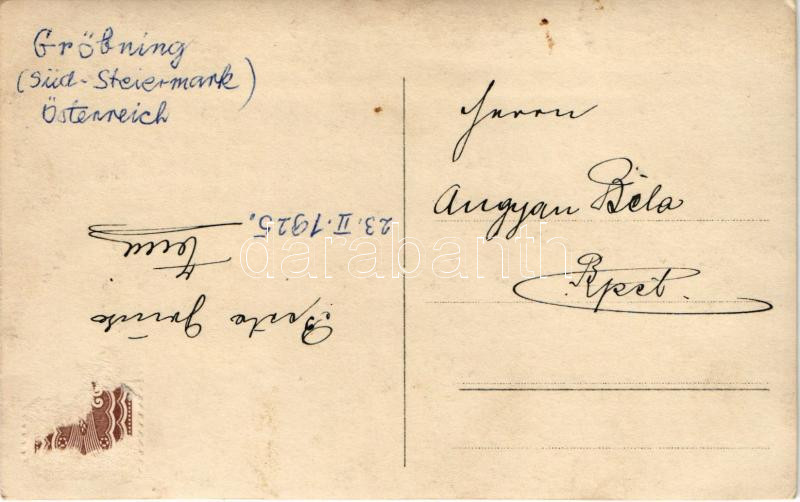 Gröbning
(Süd-Steiermark)
Österreich
Herrn
Angyan Béla
Bpest.
Beste Grüße
23. II. 1925.
darabanth